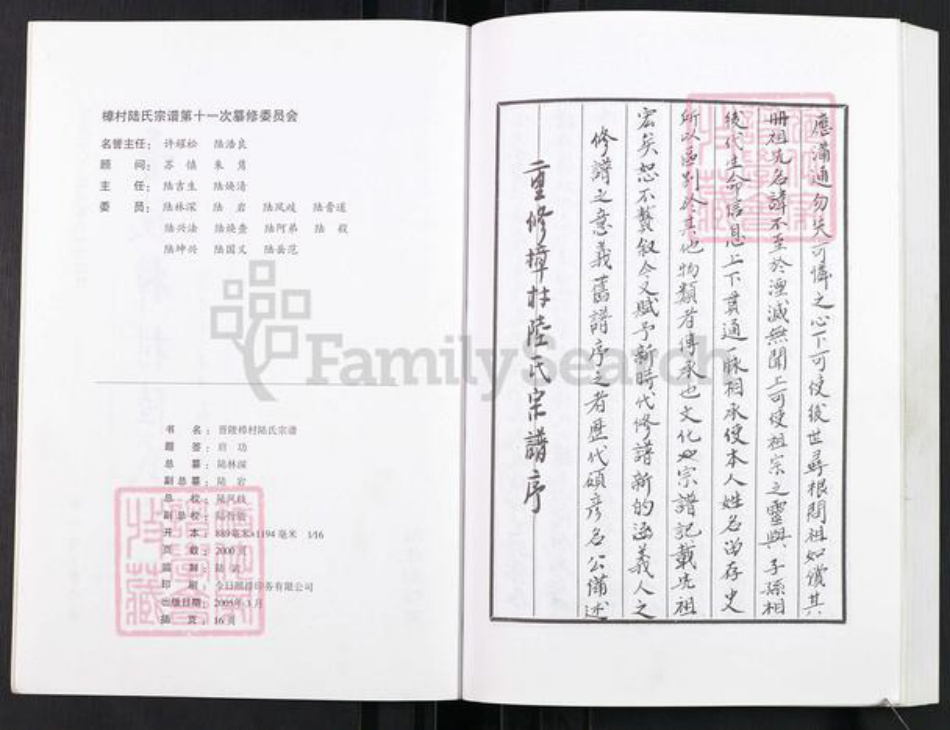 樟村陆氏宗谱第十一次纂修委员会
名誉主任：许耀松 陆浩良
顾 问：苏 慎 朱 隽
主 任：陆吉生 陆焕清
委 员：陆林深 陆 岩 陆凤岐
陆兴法 陆焕奎 陆阿弟 陆 毅
陆坤兴 陆国义 陆岳范
书 名：晋陵樟村陆氏宗谱
题 签：启 功
总 纂：陆林深
副总纂：陆 岩
总 校：陆凤岐
副总校：
开 本：889毫米×1194毫米 1/16
页 数：2000页
监 制：陆
印 刷：今日照排印务有限公司
出版日期：2005年3月
插 页：16页
重修樟村陸氏宗譜序
修譜之意義舊譜序之者歷代碩彥名公備述
宏矣恕不贅叙今又賦予新時代修譜新的涵義人之
所以區别於其他物類者傳承也文化也宗譜記載先祖
後代生命信息上下貫通一脈相承使本人姓名留存史
册祖先名諱不至於湮滅無聞上可使祖宗之靈與子孫相
應溝通勿失可憐之心下可使後世尋根問祖如償其
FamilySearch